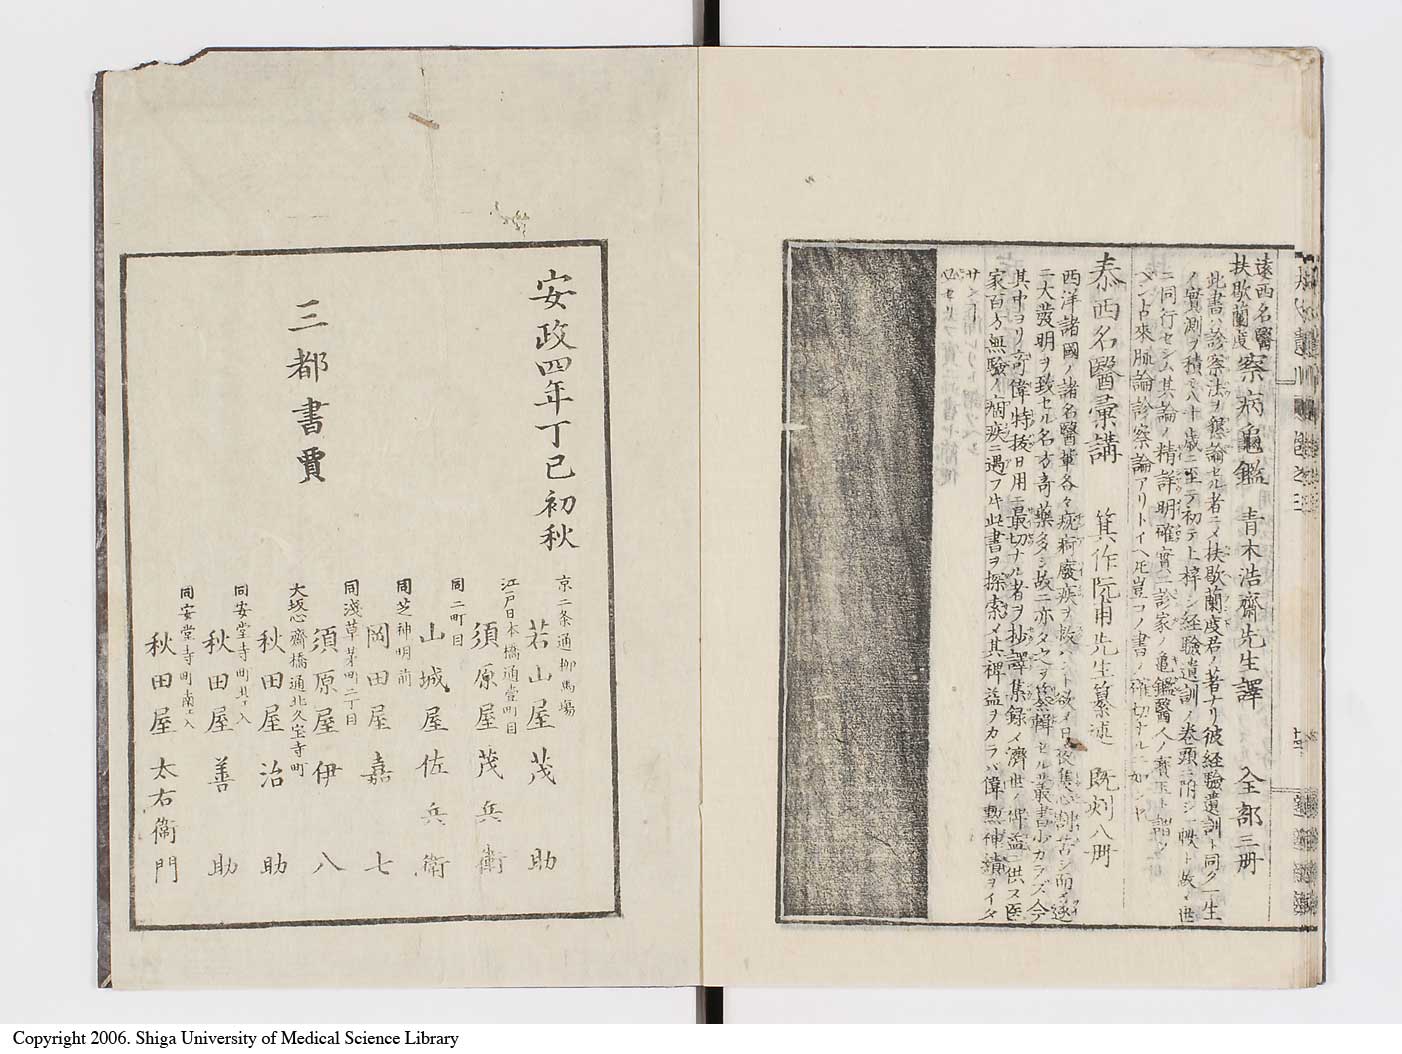 遠西名醫
扶歇蘭度 察病龜鑑 青木浩齋先生譯 全部三册
此書ハ診察法ヲ總論セル者ニメ扶歇蘭度君ノ著ナリ彼經驗遺訓ト同ク一生
ノ實測ヲ積テ八十歳ニ至テ初テ上梓シ經驗遺訓ノ卷頭ニ附シ一帙ト
ニ同行セシム其論ノ精詳明確實ニ診家ノ龜鑑醫人ノ寳玉ト謂ツ
ベシ古來脈論診察論アリトイヘ𪜈豈コノ書ノ確切ナルニ如ンヤ
泰西名醫彙講 箕作阮甫先生纂述 既刻八册
西洋諸國ノ諸名醫輩各々痼廢疾ヲ救ハント欲メ日夜集心
ニ大發明ヲ致セル名方奇藥多シ故ニ亦タ之ヲ纂輯セル叢書少カラズ今
其中ヨリ奇偉特拔日用ニ最切ナル者ヲ抄譯集錄メ濟世ノ裨益ニ供ス医
家百方無驗ノ痼疾ニ遇フ𪜈此書ヲ探索メ其裨益ヲカラバ偉勲神績ヲイタ
サン
安政四年丁巳初秋
三都書賈
京二条通柳馬場
若山屋茂助
江戸日本橋通壹町目
須原屋茂兵衛
同二町目
山城屋佐兵衛
同芝神明前
岡田屋嘉七
同淺草茅町二丁目
須原屋伊八
大坂心齋橋通北久宝寺町
秋田屋治助
同安堂寺町北ヘ入
秋田屋善助
同安堂寺町南ヘ入
秋田屋太右衛門
Copyright 2006. Shiga University of Medical Science Library